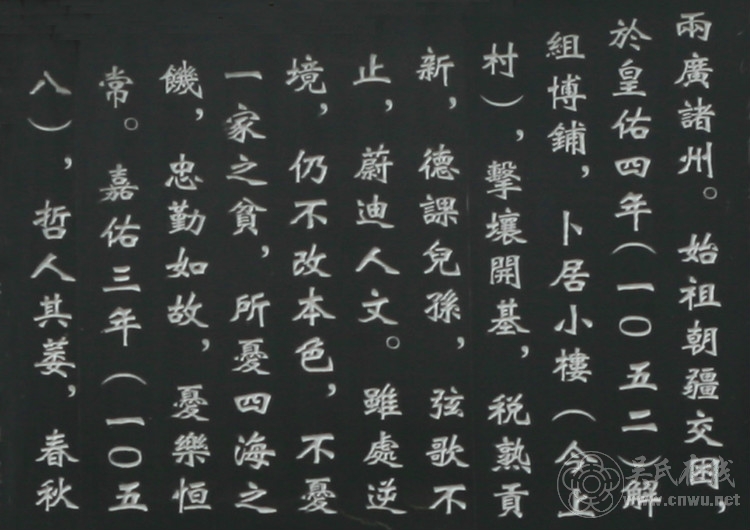 兩廣諸州。始祖朝疆交困，
於皇佑四年（一〇五二）解
組博鋪，卜居小樓（今上
村），擊壤開基，税熟貢
新，德課兒孫，弦歌不
止，蔚迪人文。雖處逆
境，仍不改本色，不憂
一家之貧，所憂四海之
饑，忠勤如故，憂樂恒
常。嘉佑三年（一〇五
八），哲人其萎，春秋
吴氏在线
www.cnwu.net